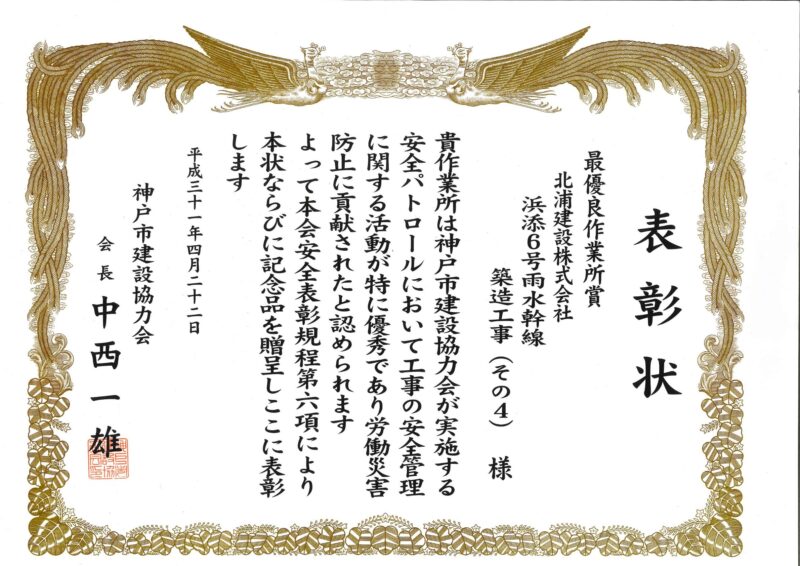 表彰状
最優良作業所賞
北浦建設株式会社
浜添6号雨水幹線
築造工事(その4) 様
貴作業所は神戸市建設協力会が実施する
安全パトロールにおいて工事の安全管理
に関する活動が特に優秀であり労働災害
防止に貢献されたと認められます
よって本会安全表彰規程第六項により
本状ならびに記念品を贈呈しここに表彰
します
平成三十一年四月二十二日
神戸市建設協力会
会長 中西一雄